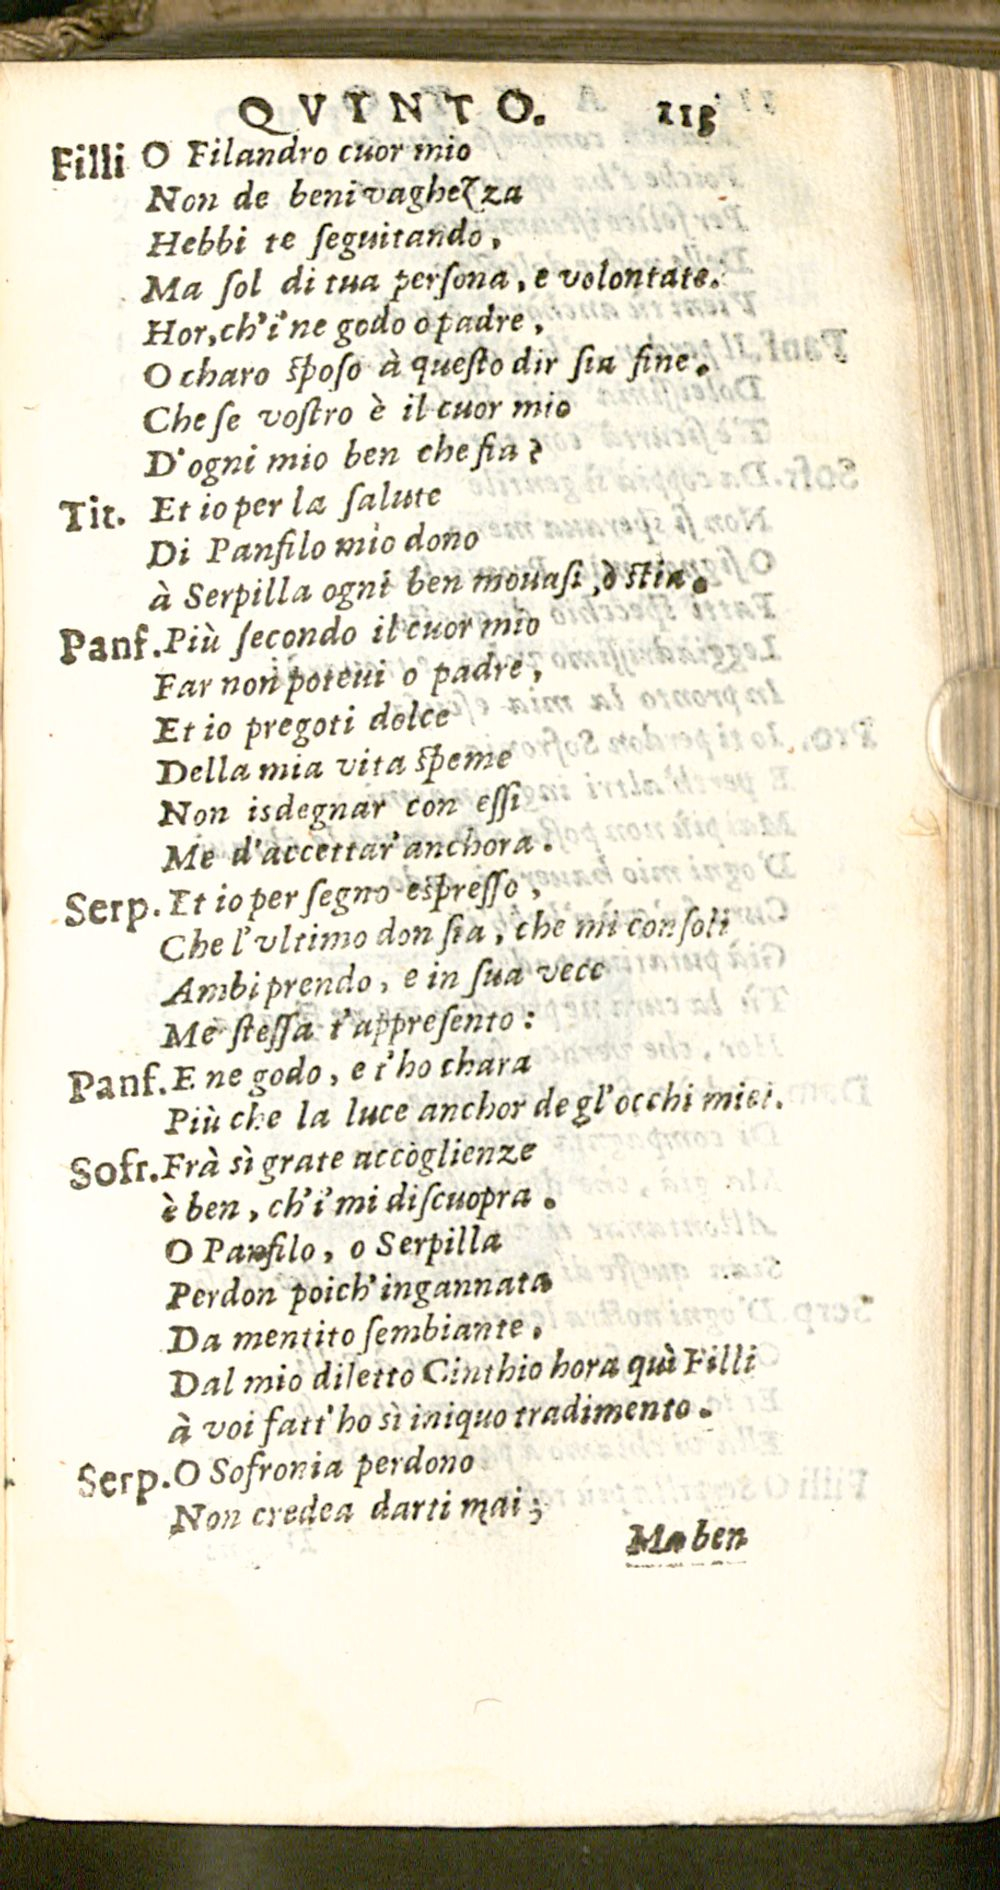 QVINTO. 115
Filli O Filandro cuor mio
Non de beni vagheʒza
Hebbi te ſeguitando,
Ma ſol di tua perſona, e volontate.
Hor, ch'i' ne godo o padre,
O charo ſpoſo à queſto dir ſia fine.
Che ſe voſtro è il cuor mio
D'ogni mio ben che fia?
Tit. Et io per la ſalute
Di Panfilo mio dono
à Serpilla ogni ben mouaſi, ò ſtia.
Panf. Più ſecondo il cuor mio
Far non poteui o padre,
Et io pregoti dolce
Della mia vita ſpeme
Non isdegnar con eſſi
Me d'accettar' anchora.
Serp. Et io per ſegno eſpreſſo,
Che l'vltimo don ſia, che mi conſoli
Ambi prendo, e in ſua vece
Me ſteſſa t'appreſento:
Panf. E ne godo, e t'ho chara
Più che la luce anchor de gl'occhi miei.
Sofr. Frà sì grate accoglienze
è ben, ch'i' mi diſcuopra.
O Panfilo, o Serpilla
Perdon poich' ingannata
Da mentito ſembiante,
Dal mio diletto Cinthio hora quì Filli
à voi fatt' ho sì iniquo tradimento.
Serp. O Sofronia perdono
Non credea darti mai;
Ma ben